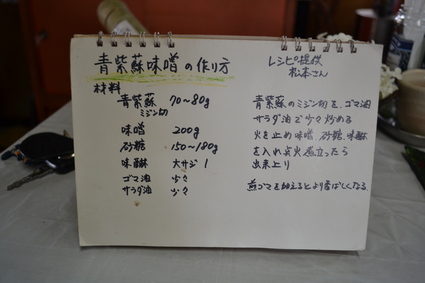 青紫蘇味噌の作り方
レシピ提供
松本さん
材料
青紫蘇 70~80g
ミジン切
味噌 200g
砂糖 150~180g
味醂 大サジ1
ゴマ油 少々
サラダ油 少々
青紫蘇のミジン切を、ゴマ油
サラダ油で少々炒める
火を止め味噌、砂糖、味醂
を入れ点火 煮立ったら
出来上り
煎ゴマを加えるとより香ばしくなる